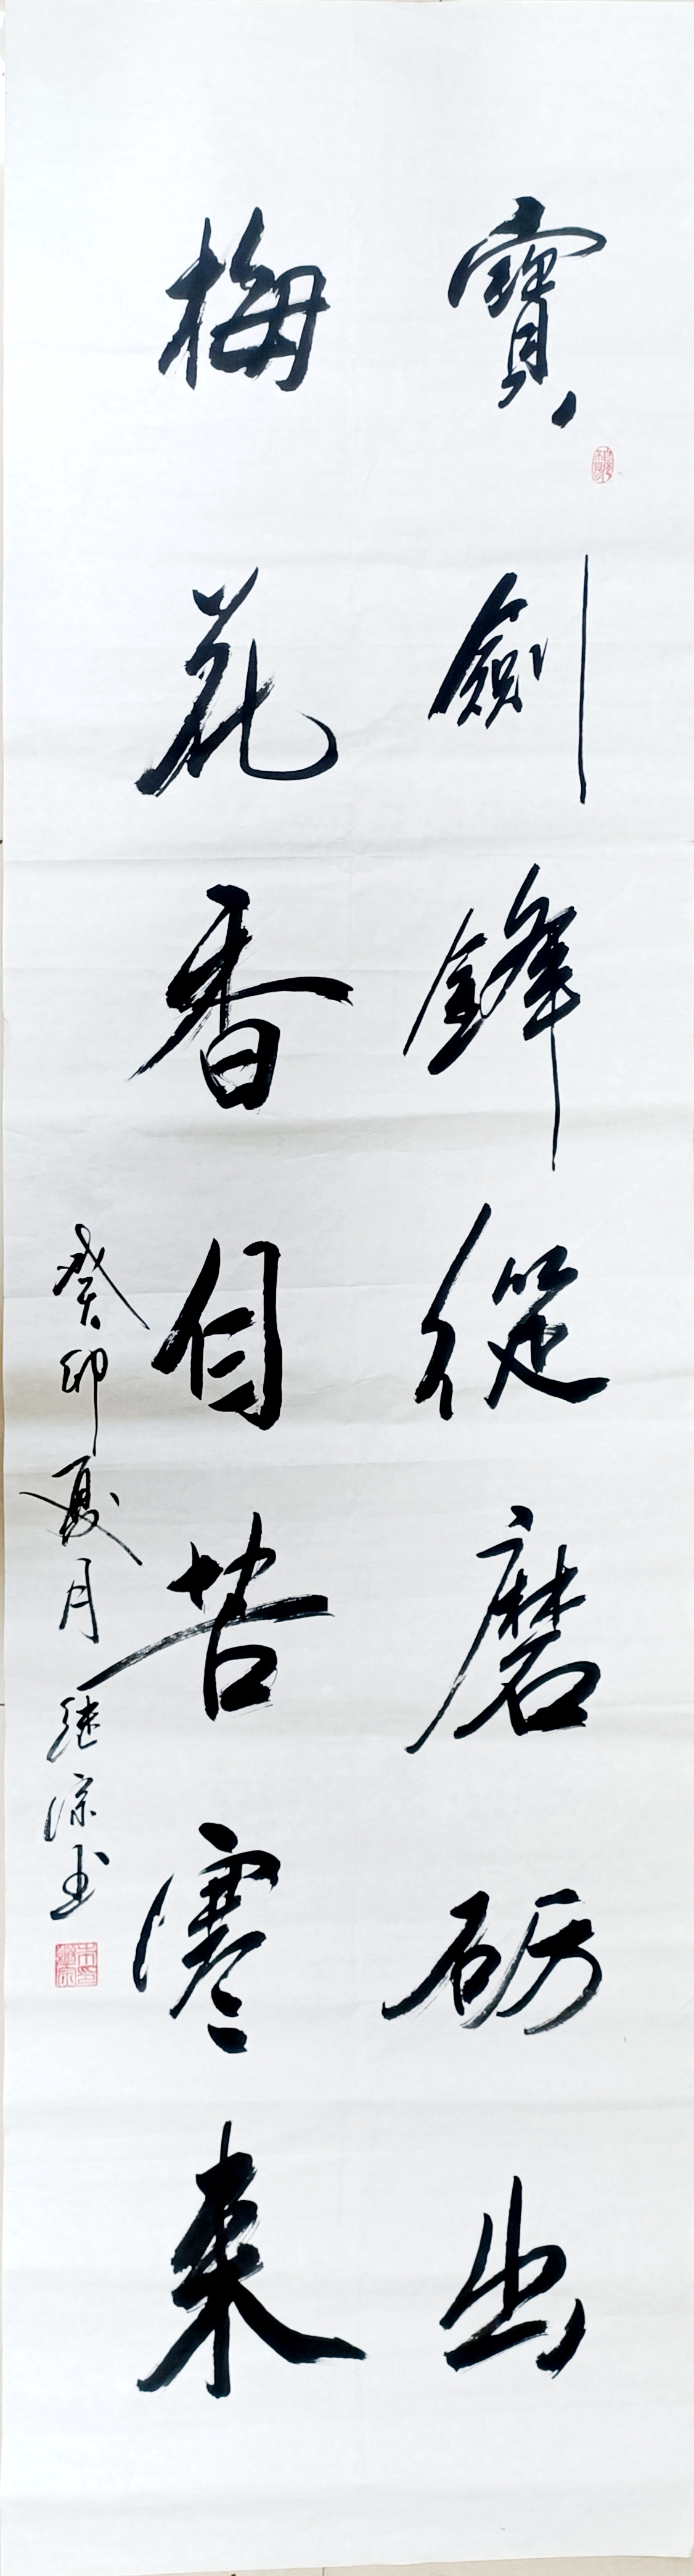 寶劍鋒從磨砺出
梅花香自苦寒來
癸卯夏月继宗书